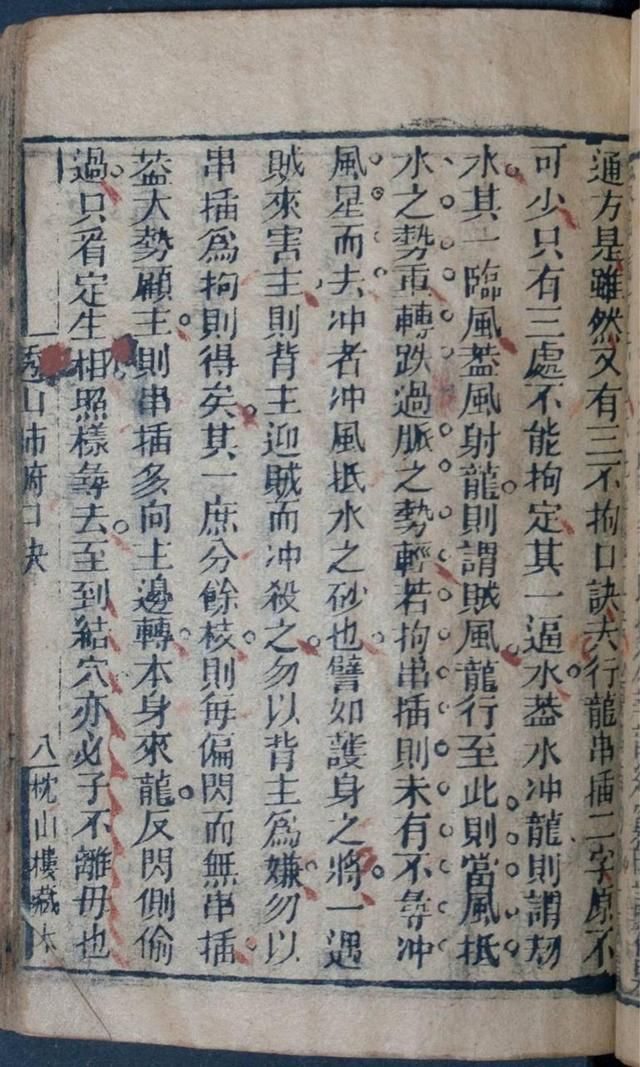 通方是雖然又有三不拘口訣夫行龍串插二字原不
可少只有三處不能拘定其一逼水葢水冲龍則謂刼
水其一臨風葢風射龍則謂賊風龍行至此則當風抵
水之勢重轉跌過脈之勢輕若拘串插則未有不尋冲
風星而去冲者冲風抵水之砂也譬如護身之將一遇
賊來害主則背主迎賊而冲殺之勿以背主爲嫌勿以
串插爲拘則得矣其一庶分餘枝則每偏閃而無串插
葢大勢顧主則串插多向主邊轉本身來龍反閃側偷
過只看定生相照樣尋去至到結穴亦必子不離毋也
山肺腑口訣 八 枕山樓藏本